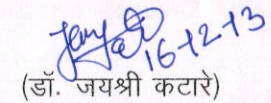 16-12-13
(डॉ. जयश्री कटारे)